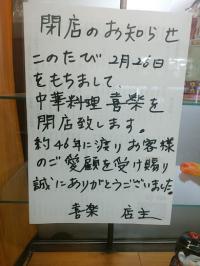 閉店のお知らせ
このたび 2月26日
をもちまして、
中華料理 喜楽を
閉店致します。
約46年に渡りお客様
のご愛顧を受け賜り
誠にありがとうございました。
喜楽 店主